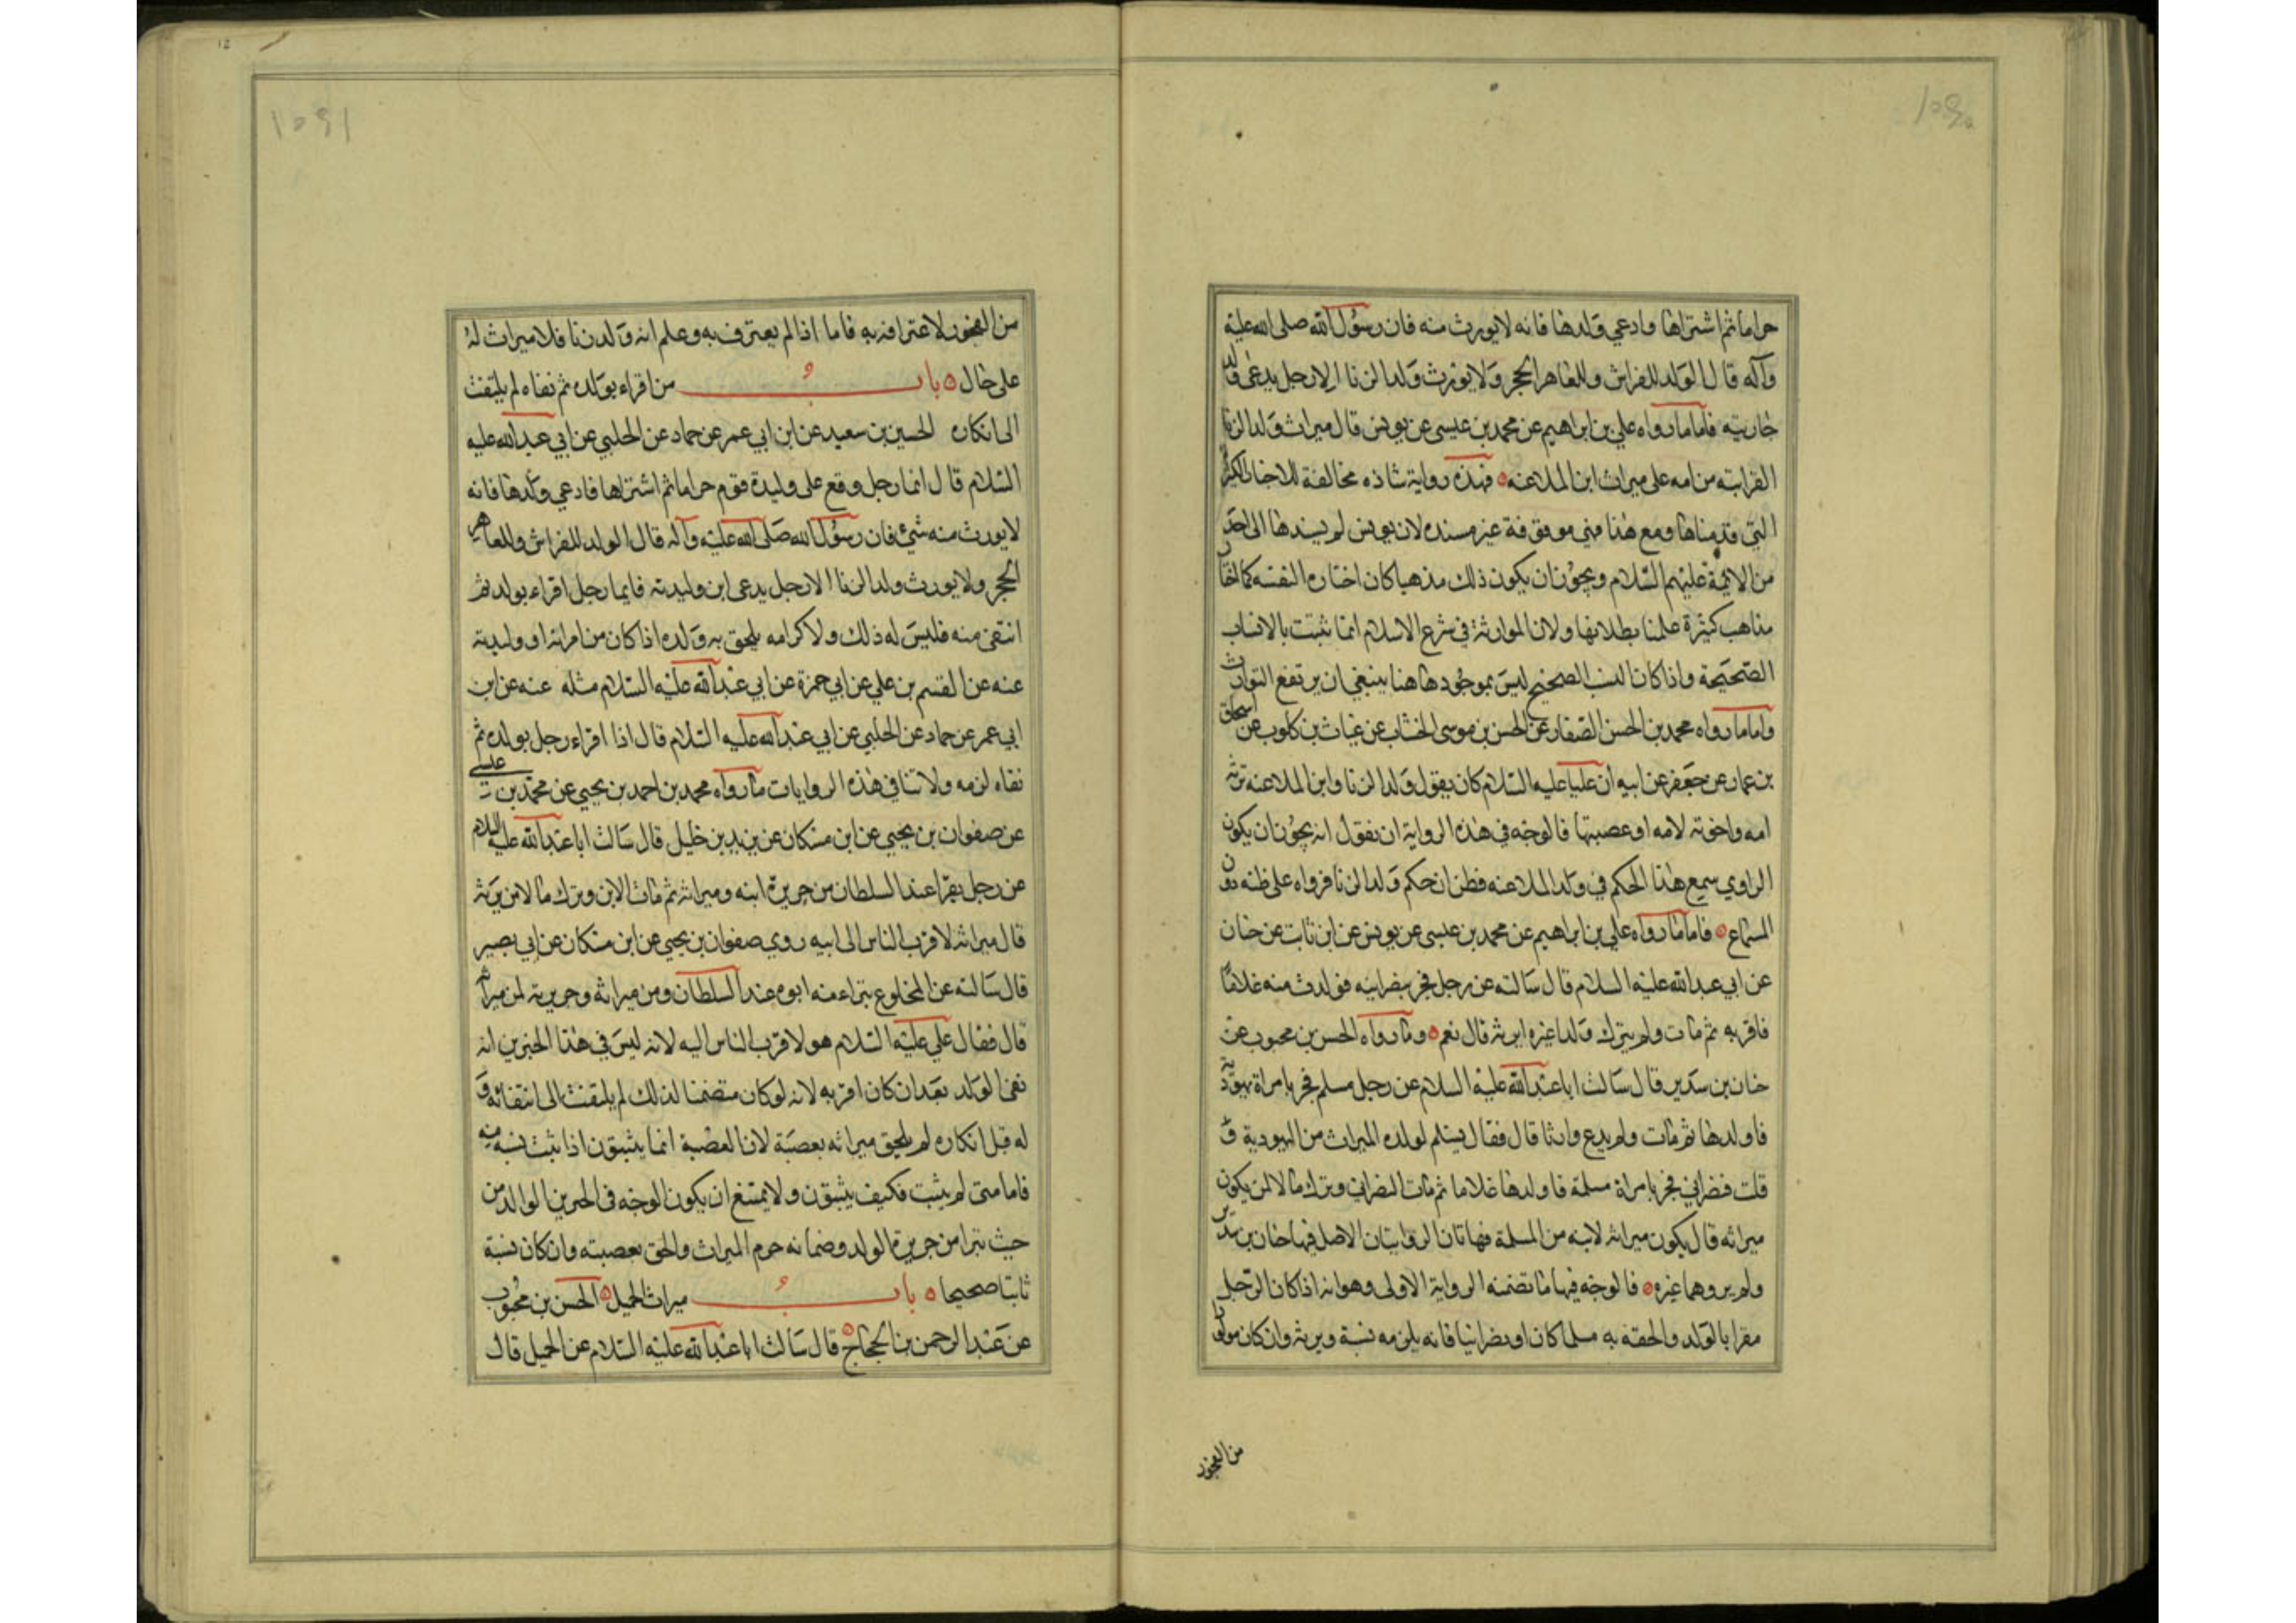 حراما ثم اشتراها وادعى ولدها فانه لا يورث منه فان رسول الله صلى الله عليه
وآله قال الولد للفراش وللعاهر الحجر ولا يورث ولد الزنا الا رجل يدعى ولد
جاريته فاما ما رواه علي بن ابراهيم عن محمد بن عيسى عن يونس قال ميراث ولد الزنا
القرابته من امه على ميراث ابن الملاعنه فهذه رواية شاذه مخالفة للاخبار الكثيرة
التي قدمناها ومع هذا فهي موقوفة غير مسنده لان يونس لم يسندها الى احد
من الائمة عليهم السلام ويجوز ان يكون ذلك مذهبا كان اختاره لنفسه كما اختار
مذاهب كثيرة علمنا بطلانها ولان الموارثة في شرع الاسلام انما تثبت بالانساب
الصحيحة واذا كان النسب الصحيح ليس بموجود هاهنا ينبغي ان يرتفع التوارث
واما ما رواه محمد بن الحسن الصفار عن الحسن بن موسى الخشاب عن غياث بن كلوب عن اسحاق
بن عمار عن جعفر عن ابيه ان عليا عليه السلام كان يقول ولد الزنا وابن الملاعنه ترثه
امه واخوته لامه او عصبتها فالوجه في هذه الرواية ان نقول انه يجوز ان يكون
الراوي سمع هذا الحكم في ولد الملاعنه فظن ان حكم ولد الزنا فرواه على ظنه دون
السماع فاما ما رواه علي بن ابراهيم عن محمد بن عيسى عن يونس عن ابن ثابت عن حنان
عن ابي عبد الله عليه السلام قال سالته عن رجل فجر بنصرانيه فولدت منه غلاما
فاقر به ثم مات ولم يترك ولدا غيره ايرثه قال نعم وما رواه الحسن بن محبوب عن
حنان بن سدير قال سالت ابا عبد الله عليه السلام عن رجل مسلم فجر بامراة يهودية
فاولدها ثم مات ولم يدع وارثا قال فقال يسلم لولده الميراث من اليهودية ق
قلت فنصراني فجر بامراة مسلمة فاولدها غلاما ثم مات النصراني وترك مالا لمن يكون
ميراثه قال يكون ميراثه لابنه من المسلمة فهاتان الروايتان الاصل فيها حنان بن سدير
ولم يروهما غيره فالوجه فيهما ما تضمنه الرواية الاولى وهو انه اذا كان الرجل
مقرا بالولد والحقه به مسلما كان او نصرانيا فانه يلزمه نسبة ويرثه وان كان مولودا
من الفجور
من الفجور لاعترافه به فاما اذا لم يعترف به وعلم انه ولد زنا فلا ميراث له
على حال باب من اقراء بولده ثم نفاه لم يلتفت
الى انكاره الحسين بن سعيد عن ابن ابي عمر عن حماد عن الحلبي عن ابي عبد الله عليه
السلام قال ايما رجل وقع على وليدة قوم حراما ثم اشتراها فادعى ولدها فانه
لا يورث منه شئ فان رسول الله صلى الله عليه وآله قال الولد للفراش وللعاهر
الحجر ولا يورث ولد الزنا الا رجل يدعى ابن وليدته فايما رجل اقراء بولد ثم
انتفى منه فليس له ذلك ولا كرامه يلحق به ولده اذا كان من امراته او وليدته
عنه عن القسم بن علي عن ابي حمزة عن ابي عبد الله عليه السلام مثله عنه عن ابن
ابي عمر عن حماد عن الحلبي عن ابي عبد الله عليه السلام قال اذا اقراء رجل بولده ثم
نفاه لزمه ولا تنافي هذه الروايات ما رواه محمد بن احمد بن يحيى عن محمد بن عيسى
عن صفوان بن يحيى عن ابن مسكان عن يزيد بن خليل قال سالت ابا عبد الله عليه السلام
عن رجل تبرا عند السلطان من جريرة ابنه وميراثه ثم مات الابن وترك مالا من يرثه
قال ميراثه لاقرب الناس الى ابيه روى صفوان بن يحيى عن ابن مسكان عن ابي بصير
قال سالته عن المخلوع تبراء منه ابوه عند السلطان ومن ميراثه وجريرته لمن ميراثه
قال فقال علي عليه السلام هو لاقرب الناس اليه لانه ليس في هذا الخبرين انه
نفى الولد بعد ان كان اقر به لانه لو كان متضمنا لذلك لم يلتفت الى انتفائه و
له قبل انكاره لم يلحق ميراثه بعصبة لان العصبة انما يثبتون اذا ثبت نسبه منه
فاما متى لم يثبت فكيف يثبتون ولا يمتنع ان يكون الوجه في الخبرين الوالد من
حيث تبرا من جريرة الولد وضمانه حرم الميراث والحق بعصبته وان كان نسبة
ثابتا صحيحا باب ميراث الحميل الحسن بن محبوب
عن عبد الرحمن بن الحجاج قال سالت ابا عبد الله عليه السلام عن الحميل قال